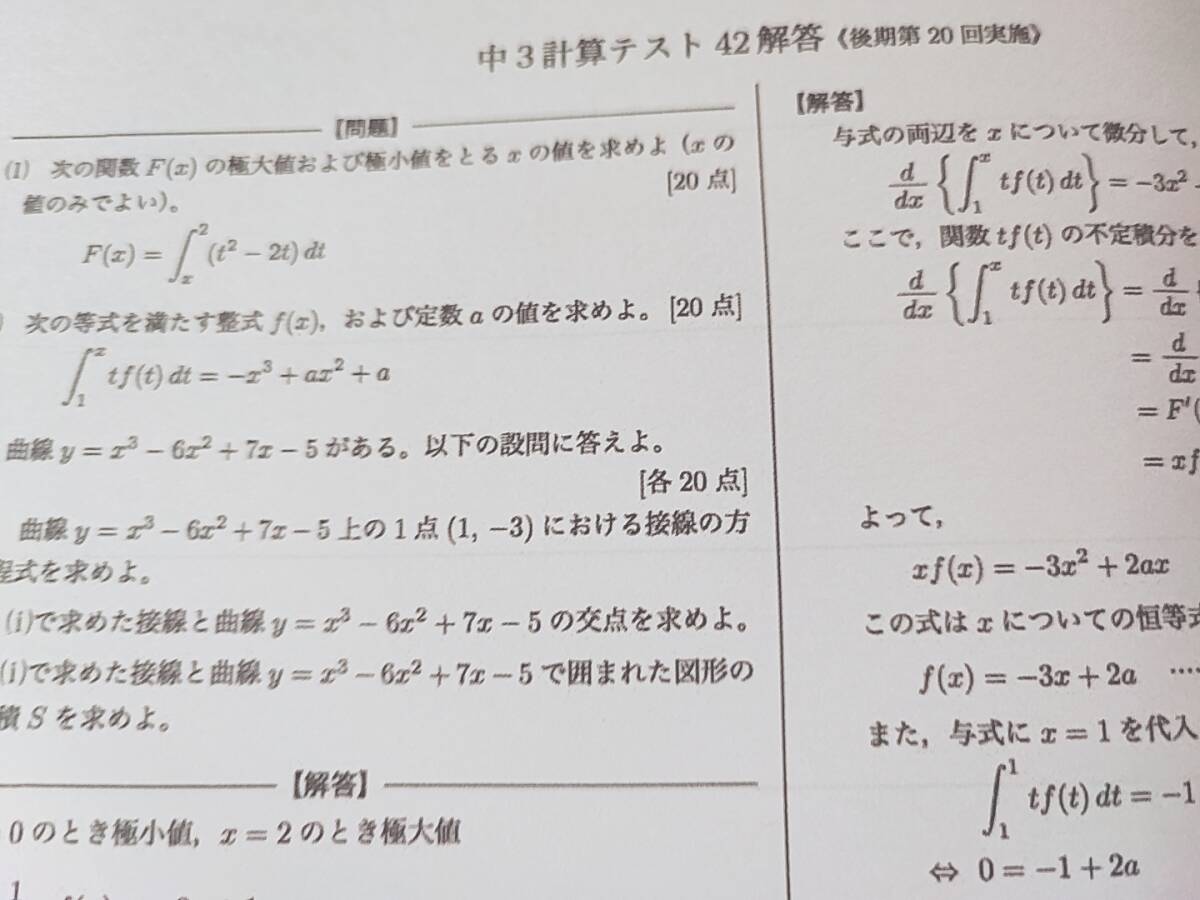 中3計算テスト 42 解答《後期第 20 回実施》
【問題】
(1) 次の関数 F(x) の極大値および極小値をとる x の値を求めよ（x の
値のみでよい）。 [20 点]
F(x) = ∫_x^2 (t² − 2t) dt
) 次の等式を満たす整式 f(x)，および定数 a の値を求めよ。[20 点]
∫_1^x tf(t) dt = −x³ + ax² + a
曲線 y = x³ − 6x² + 7x − 5 がある。以下の設問に答えよ。
[各 20 点]
曲線 y = x³ − 6x² + 7x − 5 上の 1 点 (1, −3) における接線の方
程式を求めよ。
(i)で求めた接線と曲線 y = x³ − 6x² + 7x − 5 の交点を求めよ。
(i)で求めた接線と曲線 y = x³ − 6x² + 7x − 5 で囲まれた図形の
積 S を求めよ。
【解答】
0 のとき極小値，x = 2 のとき極大値
【解答】
与式の両辺を x について微分して，
d/dx {∫_1^x tf(t) dt} = −3x²
ここで，関数 tf(t) の不定積分を
d/dx {∫_1^x tf(t) dt} = d/dx
= d/dx
= F′(
= xf
よって，
xf(x) = −3x² + 2ax
この式は x についての恒等式
f(x) = −3x + 2a ……
また，与式に x = 1 を代入
∫_1^1 tf(t) dt = −1
⇔ 0 = −1 + 2a